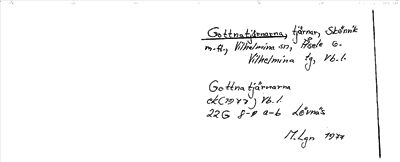 Gottnatjärnarna, tjärnar, Skönvik
m.fl., Vilhelmina sn, Åsele
Vilhelmina tg, Vb.l.
Gottnatjärnarna
ek(1977), Vb.l.
22G 8-9 a-b Lövnäs
M.Lgn 1977